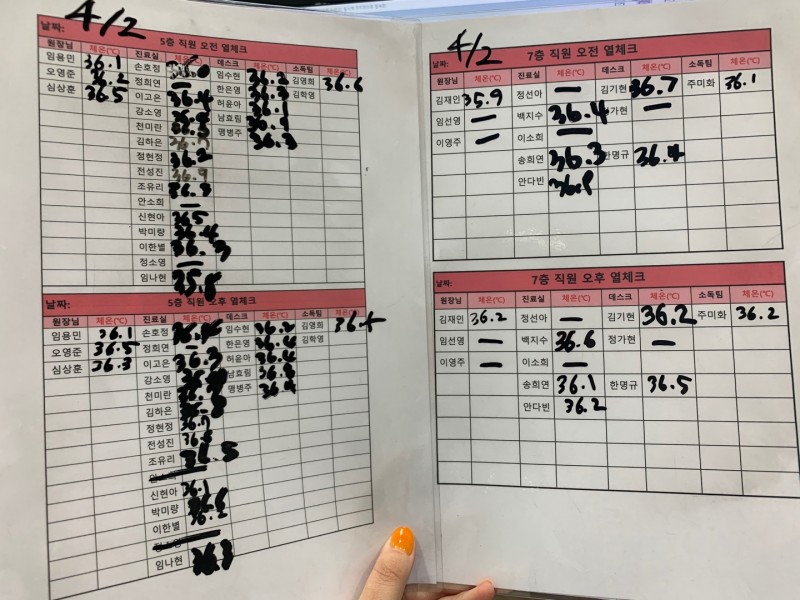 날짜: 4/2
5층 직원 오전 열체크
원장님 체온(℃) 진료실 체온(℃) 데스크 체온(℃) 소독팀 체온(℃)
임용민 36.1 손호정 임수현 36.2 김영희 36.6
오영준 36.2 정희연 — 한은영 36.3 김학영
심상훈 36.5 이고은 36.4 허윤아 36.1
강소영 남효림
천미란 36.5 맹병주 36.3
김하은
정현정 36.2
전성진 36.9
조유리
안소희 —
신현아 36.5
박미량 36.4
이한별 36.3
정소영 —
임나현 35.8
날짜:
5층 직원 오후 열체크
원장님 체온(℃) 진료실 체온(℃) 데스크 체온(℃) 소독팀 체온(℃)
임용민 36.1 손호정 임수현 36.2 김영희
오영준 36.5 정희연 — 한은영 36.4 김학영
심상훈 36.3 이고은 36.3 허윤아 36.4
강소영 남효림
천미란 맹병주
김하은
정현정
전성진
조유리
신현아 36.1
박미량
이한별 36.2
임나현 36.3
날짜: 4/2
7층 직원 오전 열체크
원장님 체온(℃) 진료실 체온(℃) 데스크 체온(℃) 소독팀 체온(℃)
김재인 35.9 정선아 — 김기현 36.7 주미화 36.1
임선영 — 백지수 36.4 가현 —
이영주 — 이소희 —
송희연 36.3 한명규 36.4
안다빈
날짜:
7층 직원 오후 열체크
원장님 체온(℃) 진료실 체온(℃) 데스크 체온(℃) 소독팀 체온(℃)
김재인 36.2 정선아 — 김기현 36.2 주미화 36.2
임선영 — 백지수 36.6 정가현 —
이영주 — 이소희 —
송희연 36.1 한명규 36.5
안다빈 36.2